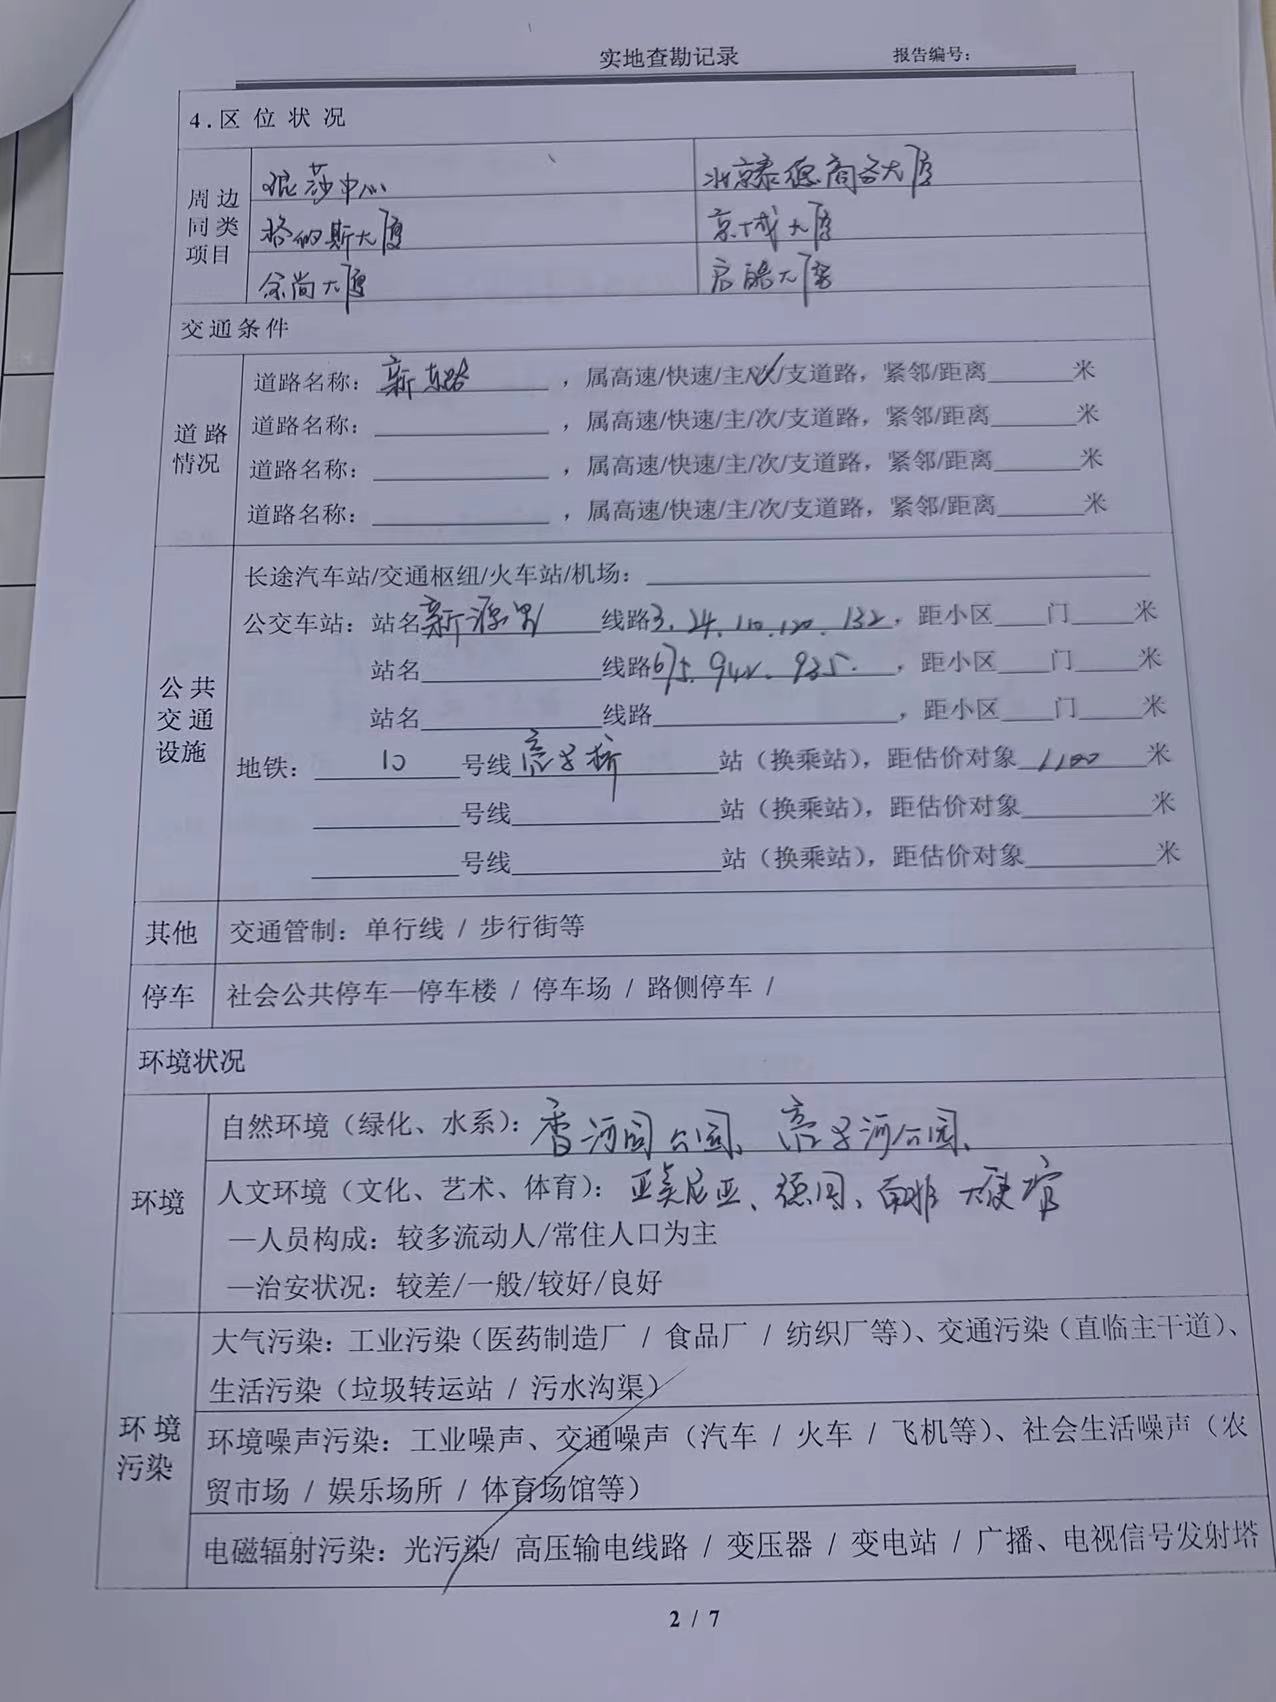 实地查勘记录
报告编号：
4.区位状况
周边同类项目
琨莎中心
北京泰德商务大厦
格纳斯大厦
京城大厦
佘尚大厦
启皓大厦
交通条件
道路情况
道路名称：新东路，属高速/快速/主/次/支道路，紧邻/距离______米
道路名称：______，属高速/快速/主/次/支道路，紧邻/距离______米
道路名称：______，属高速/快速/主/次/支道路，紧邻/距离______米
道路名称：______，属高速/快速/主/次/支道路，紧邻/距离______米
公共交通设施
长途汽车站/交通枢纽/火车站/机场：______
公交车站：站名新源里 线路3.24.110.120.132，距小区___门___米
站名______线路675.942.935.，距小区___门___米
站名______线路______，距小区___门___米
地铁：10号线亮马桥站（换乘站），距估价对象1100米
______号线______站（换乘站），距估价对象______米
______号线______站（换乘站），距估价对象______米
其他
交通管制：单行线 / 步行街等
停车
社会公共停车—停车楼 / 停车场 / 路侧停车 /
环境状况
环境
自然环境（绿化、水系）：香河园公园、亮马河公园、
人文环境（文化、艺术、体育）：亚美尼亚、德国、南非大使馆
—人员构成：较多流动人/常住人口为主
—治安状况：较差/一般/较好/良好
环境污染
大气污染：工业污染（医药制造厂 / 食品厂 / 纺织厂等）、交通污染（直临主干道）、
生活污染（垃圾转运站 / 污水沟渠）
环境噪声污染：工业噪声、交通噪声（汽车 / 火车 / 飞机等）、社会生活噪声（农
贸市场 / 娱乐场所 / 体育场馆等）
电磁辐射污染：光污染/ 高压输电线路 / 变压器 / 变电站 / 广播、电视信号发射塔
2 / 7